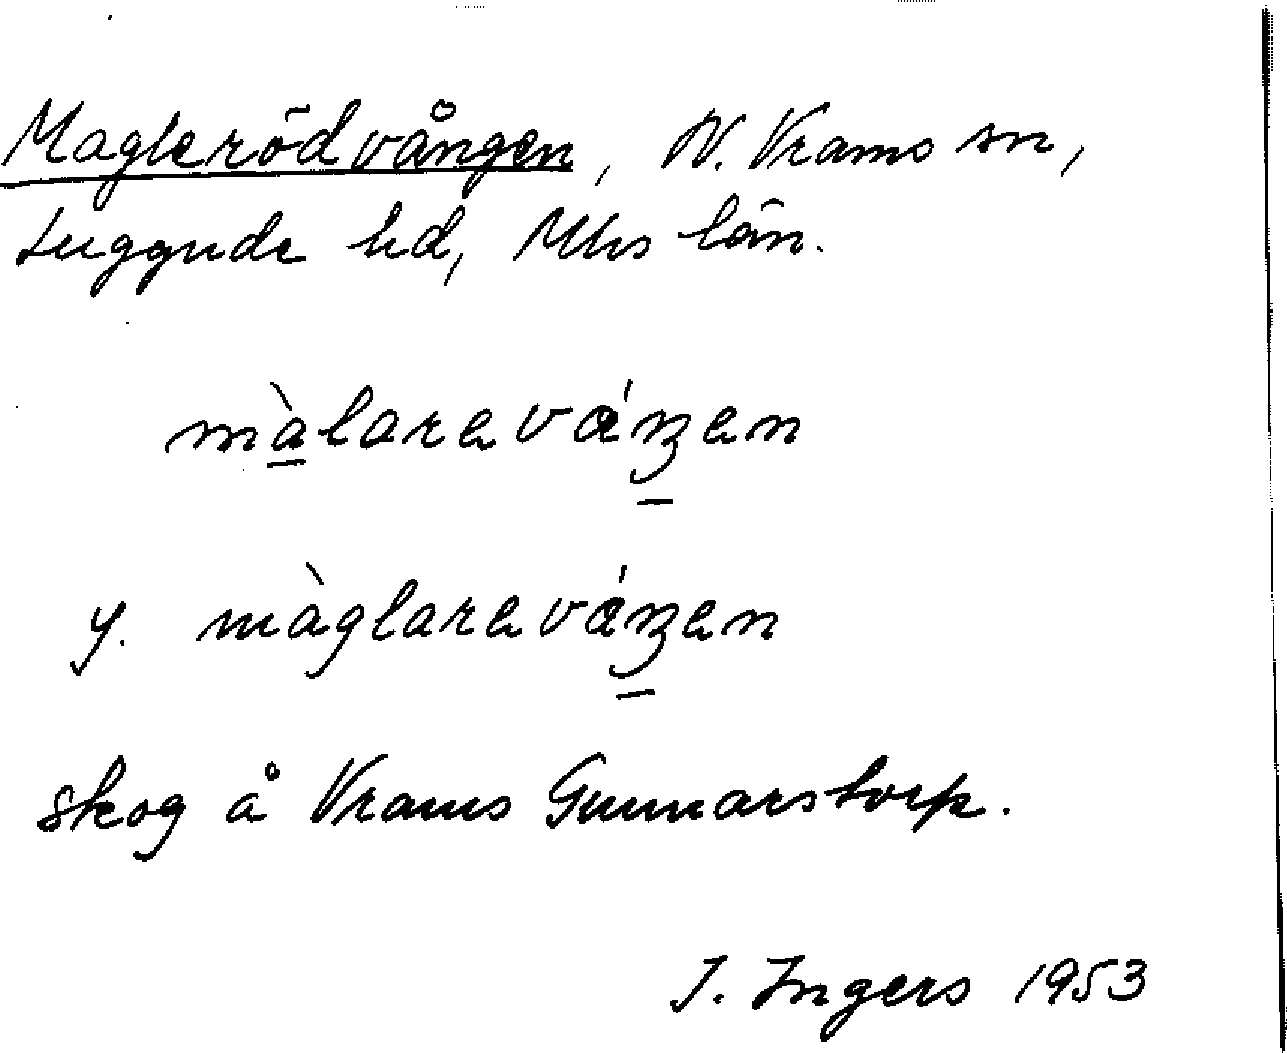 Maglerödvången, N. Vrams sn,
Luggude hd, Mhs län.
mà̱lareváŋ̱en
y. màglareváŋ̱en
skog å Vrams Gunnarstorp.
I. Ingers 1953